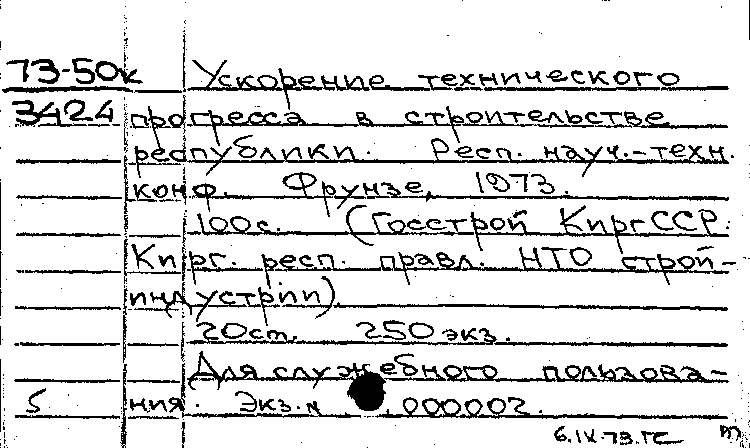 73-50к Ускорение технического
3424 прогресса в строительстве
республики. Респ. науч.-техн.
конф. Фрунзе, 1973.
100с. (Госстрой КиргССР.
Кирг. респ. правл. НТО строй-
индустрии).
20 ст. 250 экз.
Для служебного пользова-
5 ния. Экз. № 000002.
6.IX-73.ГС m